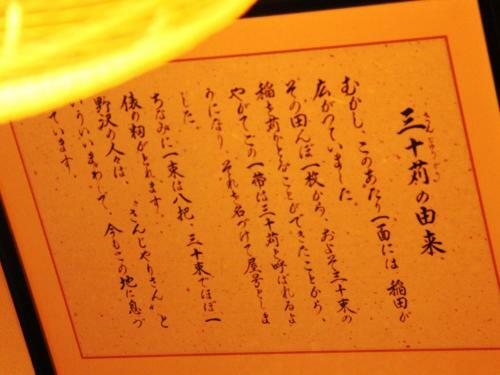 三十苅の由来
むかし、このあたり一面には 稲田が
広がっていました。
その田んぼ一枚から、およそ三十束の
稲を苅りとることができたことから、
やがてこの一帯は三十苅と呼ばれるよ
うになり、それを名づけて屋号としま
した。
ちなみに一束は八把、三十束でほぼ一
俵の籾がとれます。
野沢の人々は、“さんじゃりさん”と
いういいまわしで、今もこの地に息づ
ています。